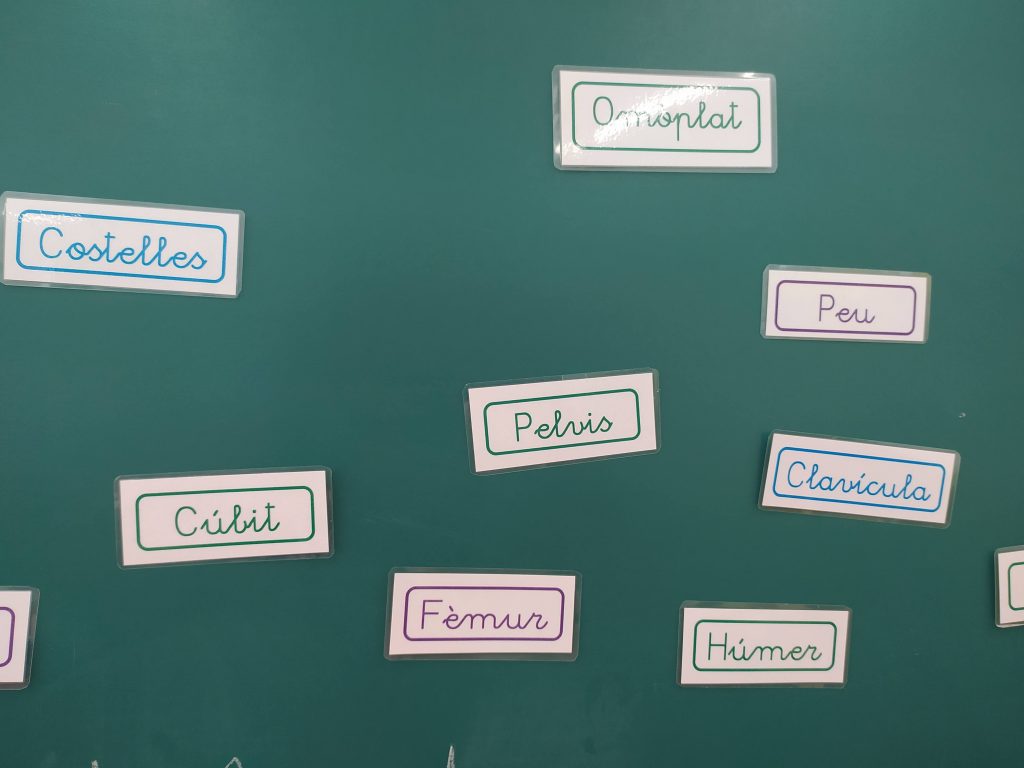 Omòplat
Costelles
Peu
Pelvis
Clavícula
Cúbit
Fèmur
Húmer